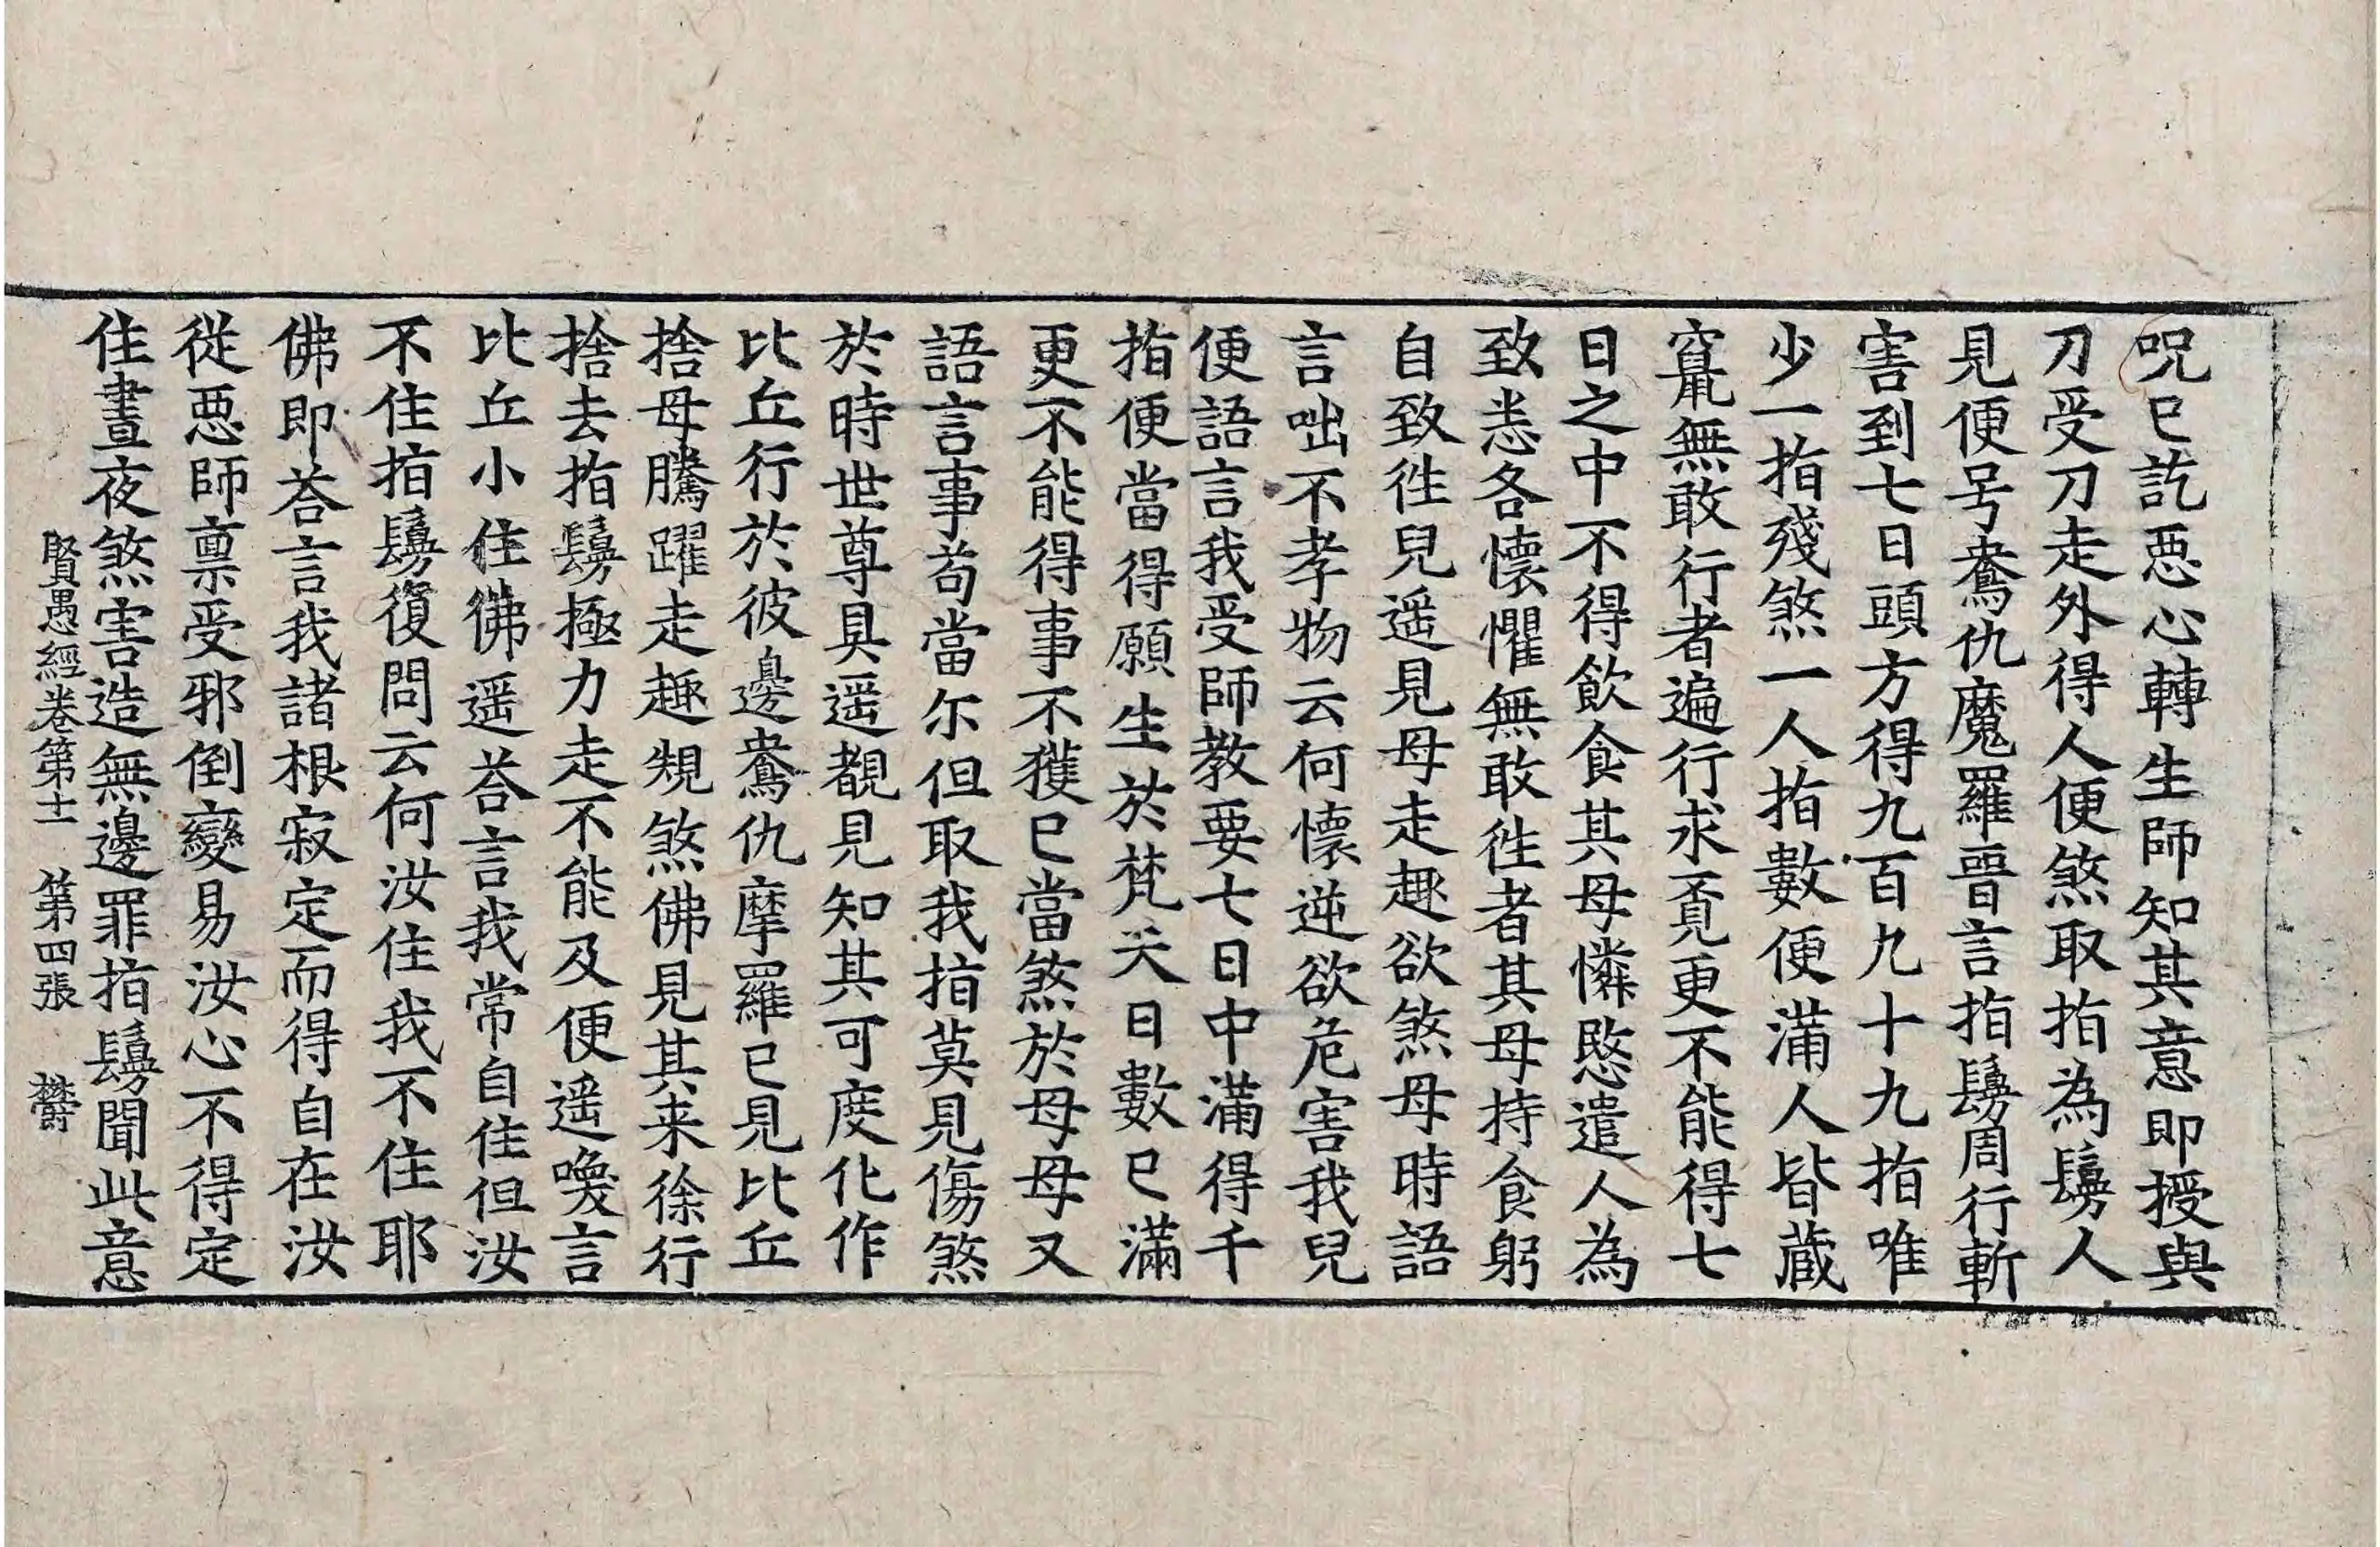 呪已訖惡心轉生師知其意即授與
刀受刀走外得人便煞取指為鬘人
見便号鴦仇魔羅晉言指鬘周行斬
害到七日頭方得九百九十九指唯
少一指殘煞一人指數便滿人皆蔵
竄無敢行者遍行求覓更不能得七
日之中不得飲食其母憐愍遣人為
致悉各懷懼無敢徃者其母持食躬
自致徃兒遥見母走趣欲煞母時語
言咄不孝物云何懷逆欲危害我兒
便語言我受師教要七日中滿得千
指便當得願生於梵天日數已滿
更不能得事不獲已當煞於母母又
語言事苟當尓但取我指莫見傷煞
於時世尊具遥覩見知其可度化作
比丘行於彼邊鴦仇摩羅已見比丘
捨母騰躍走趣規煞佛見其来徐行
捨去指鬘極力走不能及便遥喚言
比丘小住佛遥荅言我常自住但汝
不住指鬘復問云何汝住我不住耶
佛即荅言我諸根寂定而得自在汝
従惡師禀受邪倒變易汝心不得定
住晝夜煞害造無邊罪指鬘聞此意
賢愚經卷第十一 第四張 欝